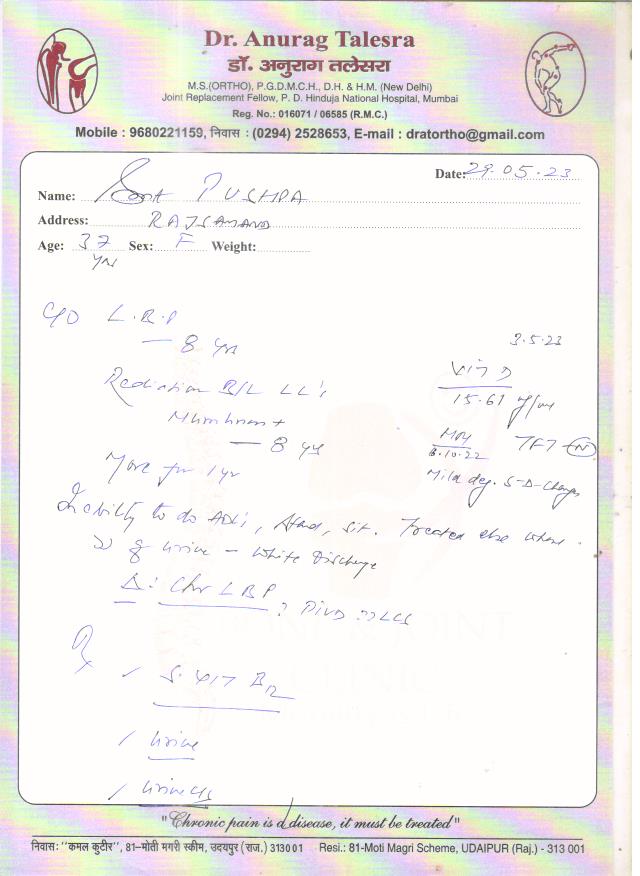 Dr. Anurag Talesra
डॉ. अनुराग तलेसरा
M.S.(ORTHO), P.G.D.M.C.H., D.H. & H.M. (New Delhi)
Joint Replacement Fellow, P. D. Hinduja National Hospital, Mumbai
Reg. No.: 016071 / 06585 (R.M.C.)
Mobile : 9680221159, निवास : (0294) 2528653, E-mail : dratortho@gmail.com
Date: 29.05.23
Name: Smt PUSHPA
Address: RAJSAMAND
Age: 37 yrs Sex: F Weight:
C/O L.B.P
— 8 yrs
3.5.23
Vit D
15.61
Radiation B/L LL's
Numbness +
— 8 yrs
MRI
8.10.22
TFT N
Mild deg. S-D-Changes
More for 1 yr
Inability to do ADL's, Stand, Sit. Treated else where.
of urine - White Discharge
Δ: Chr LBP ? PIVD ?? LCS
Rx
S. Vit B12
Urine
Urine C/S
"Chronic pain is a disease, it must be treated"
निवास: "कमल कुटीर", 81-मोती मगरी स्कीम, उदयपुर (राज.) 313001 Resi.: 81-Moti Magri Scheme, UDAIPUR (Raj.) - 313 001